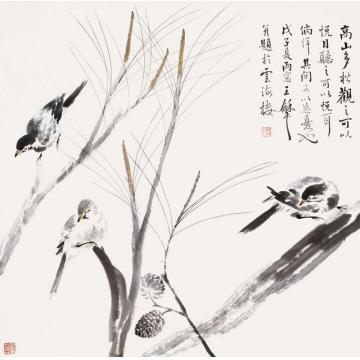 高山多松觀之可以
悦目聽之可以悦耳
徜徉其間可以悦心
戊子夏雨窓王
題於雲海樓